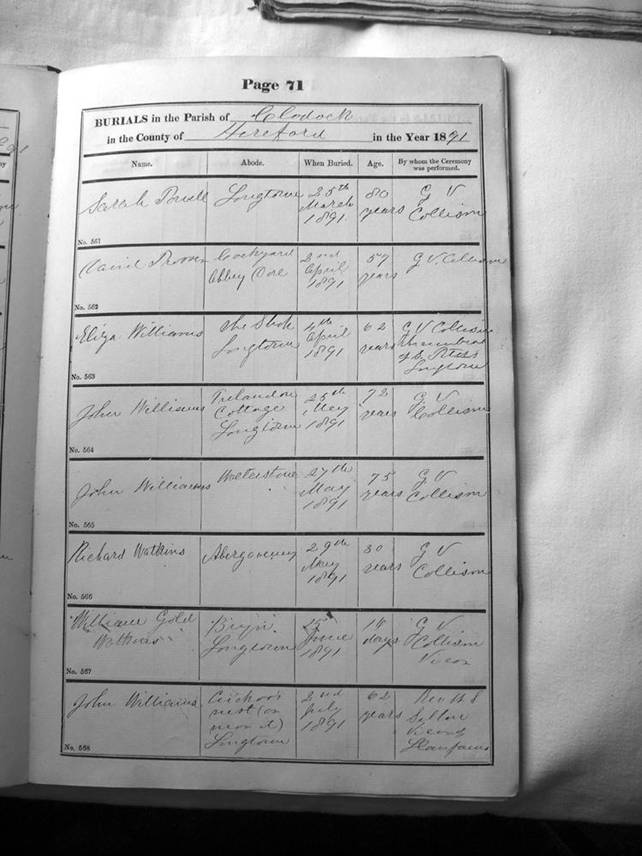 Page 71
BURIALS in the Parish of Clodock
in the County of Hereford in the Year 1891
Name. Abode. When Buried. Age. By whom the Ceremony was performed.
Sarah Powell Longtown 25th March 1891 80 years G V Collison
No. 561
David Prosser Cockyard Abbey Dore 2nd April 1891 57 years G V Collison
No. 562
Eliza Williams Longtown 4th April 1891 62 years G V Collison of St Peters Longtown
No. 563
John Williams Cottage Longtown 25th May 1891 72 years G V Collison
No. 564
John Williams Walterstone 27th May 1891 75 years G V Collison
No. 565
Richard Watkins Abergavenny 29th May 1891 30 years G V Collison
No. 566
William Gold Watkins Longtown 15th June 1891 days G V Collison Vicar
No. 567
John Williams Cuckoos nest (or near it) Longtown 2nd July 1891 62 years
No. 568